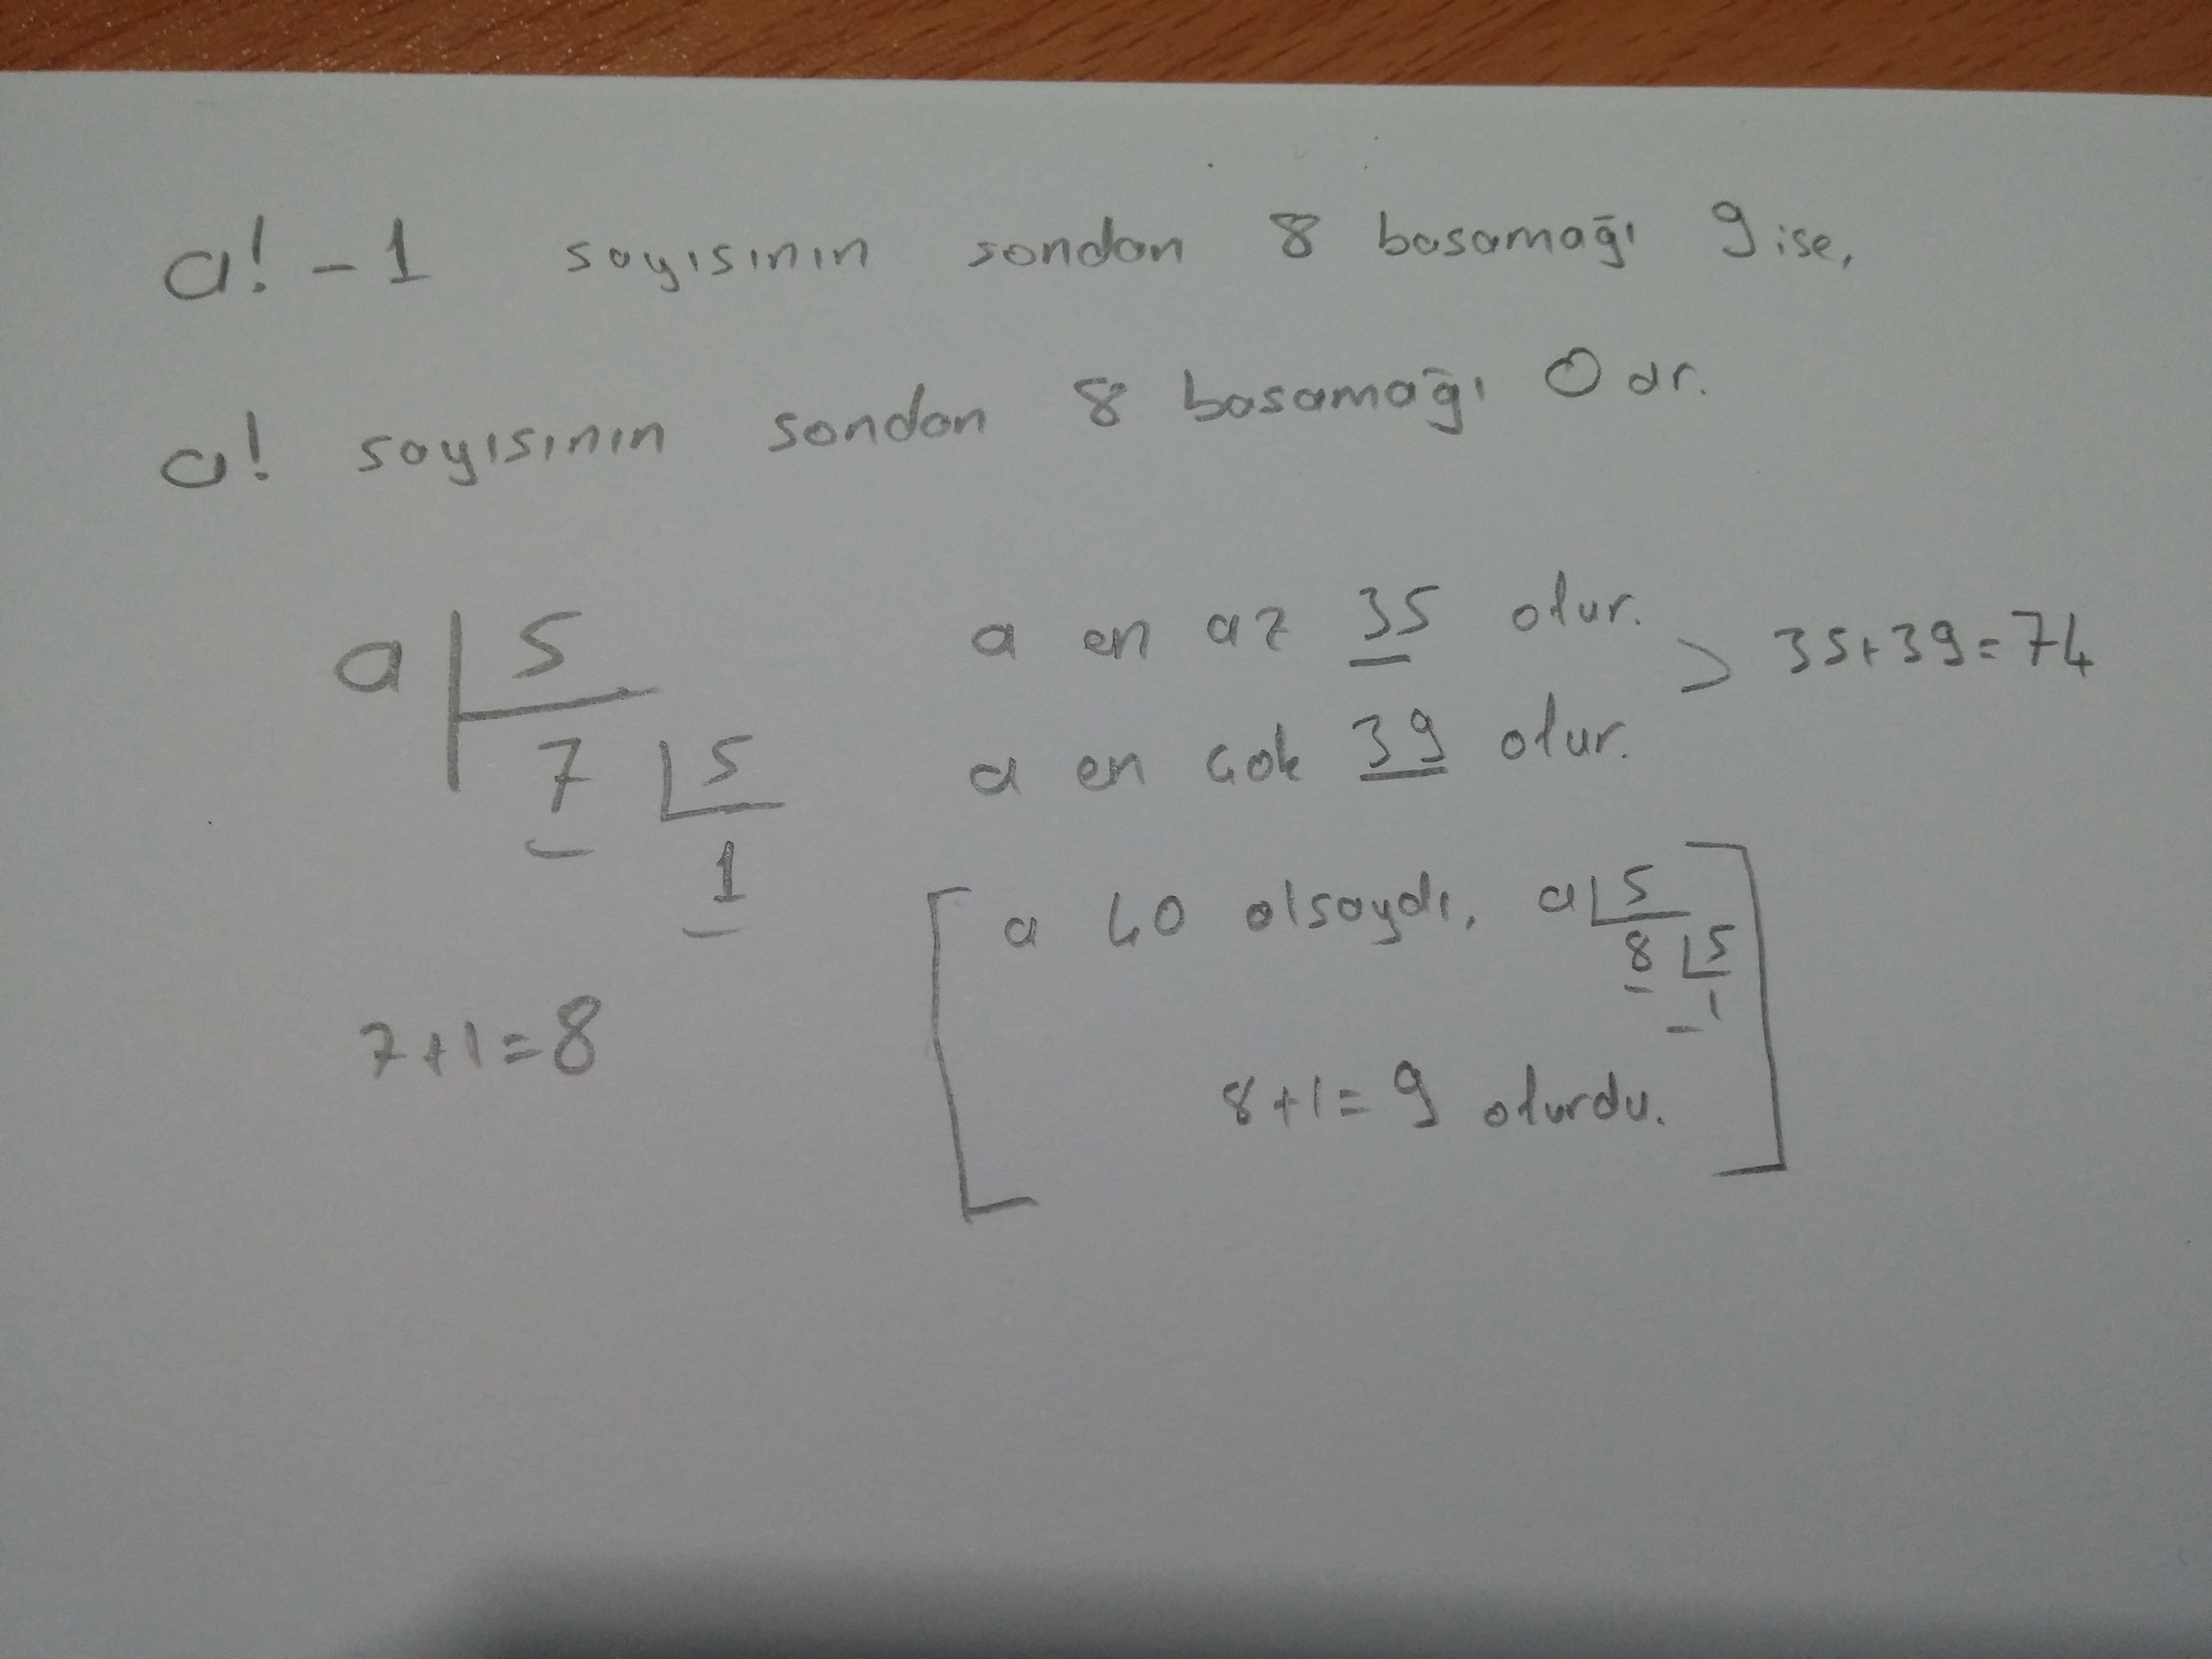 a! - 1 sayısının sondan 8 basamağı 9 ise,
a! sayısının sondan 8 basamağı 0 dır.
a 5
7 5
1
7+1=8
a en az 35 olur.
a en çok 39 olur.
> 35+39=74
a 40 olsaydı, a 5
8 5
1
8+1=9 olurdu.